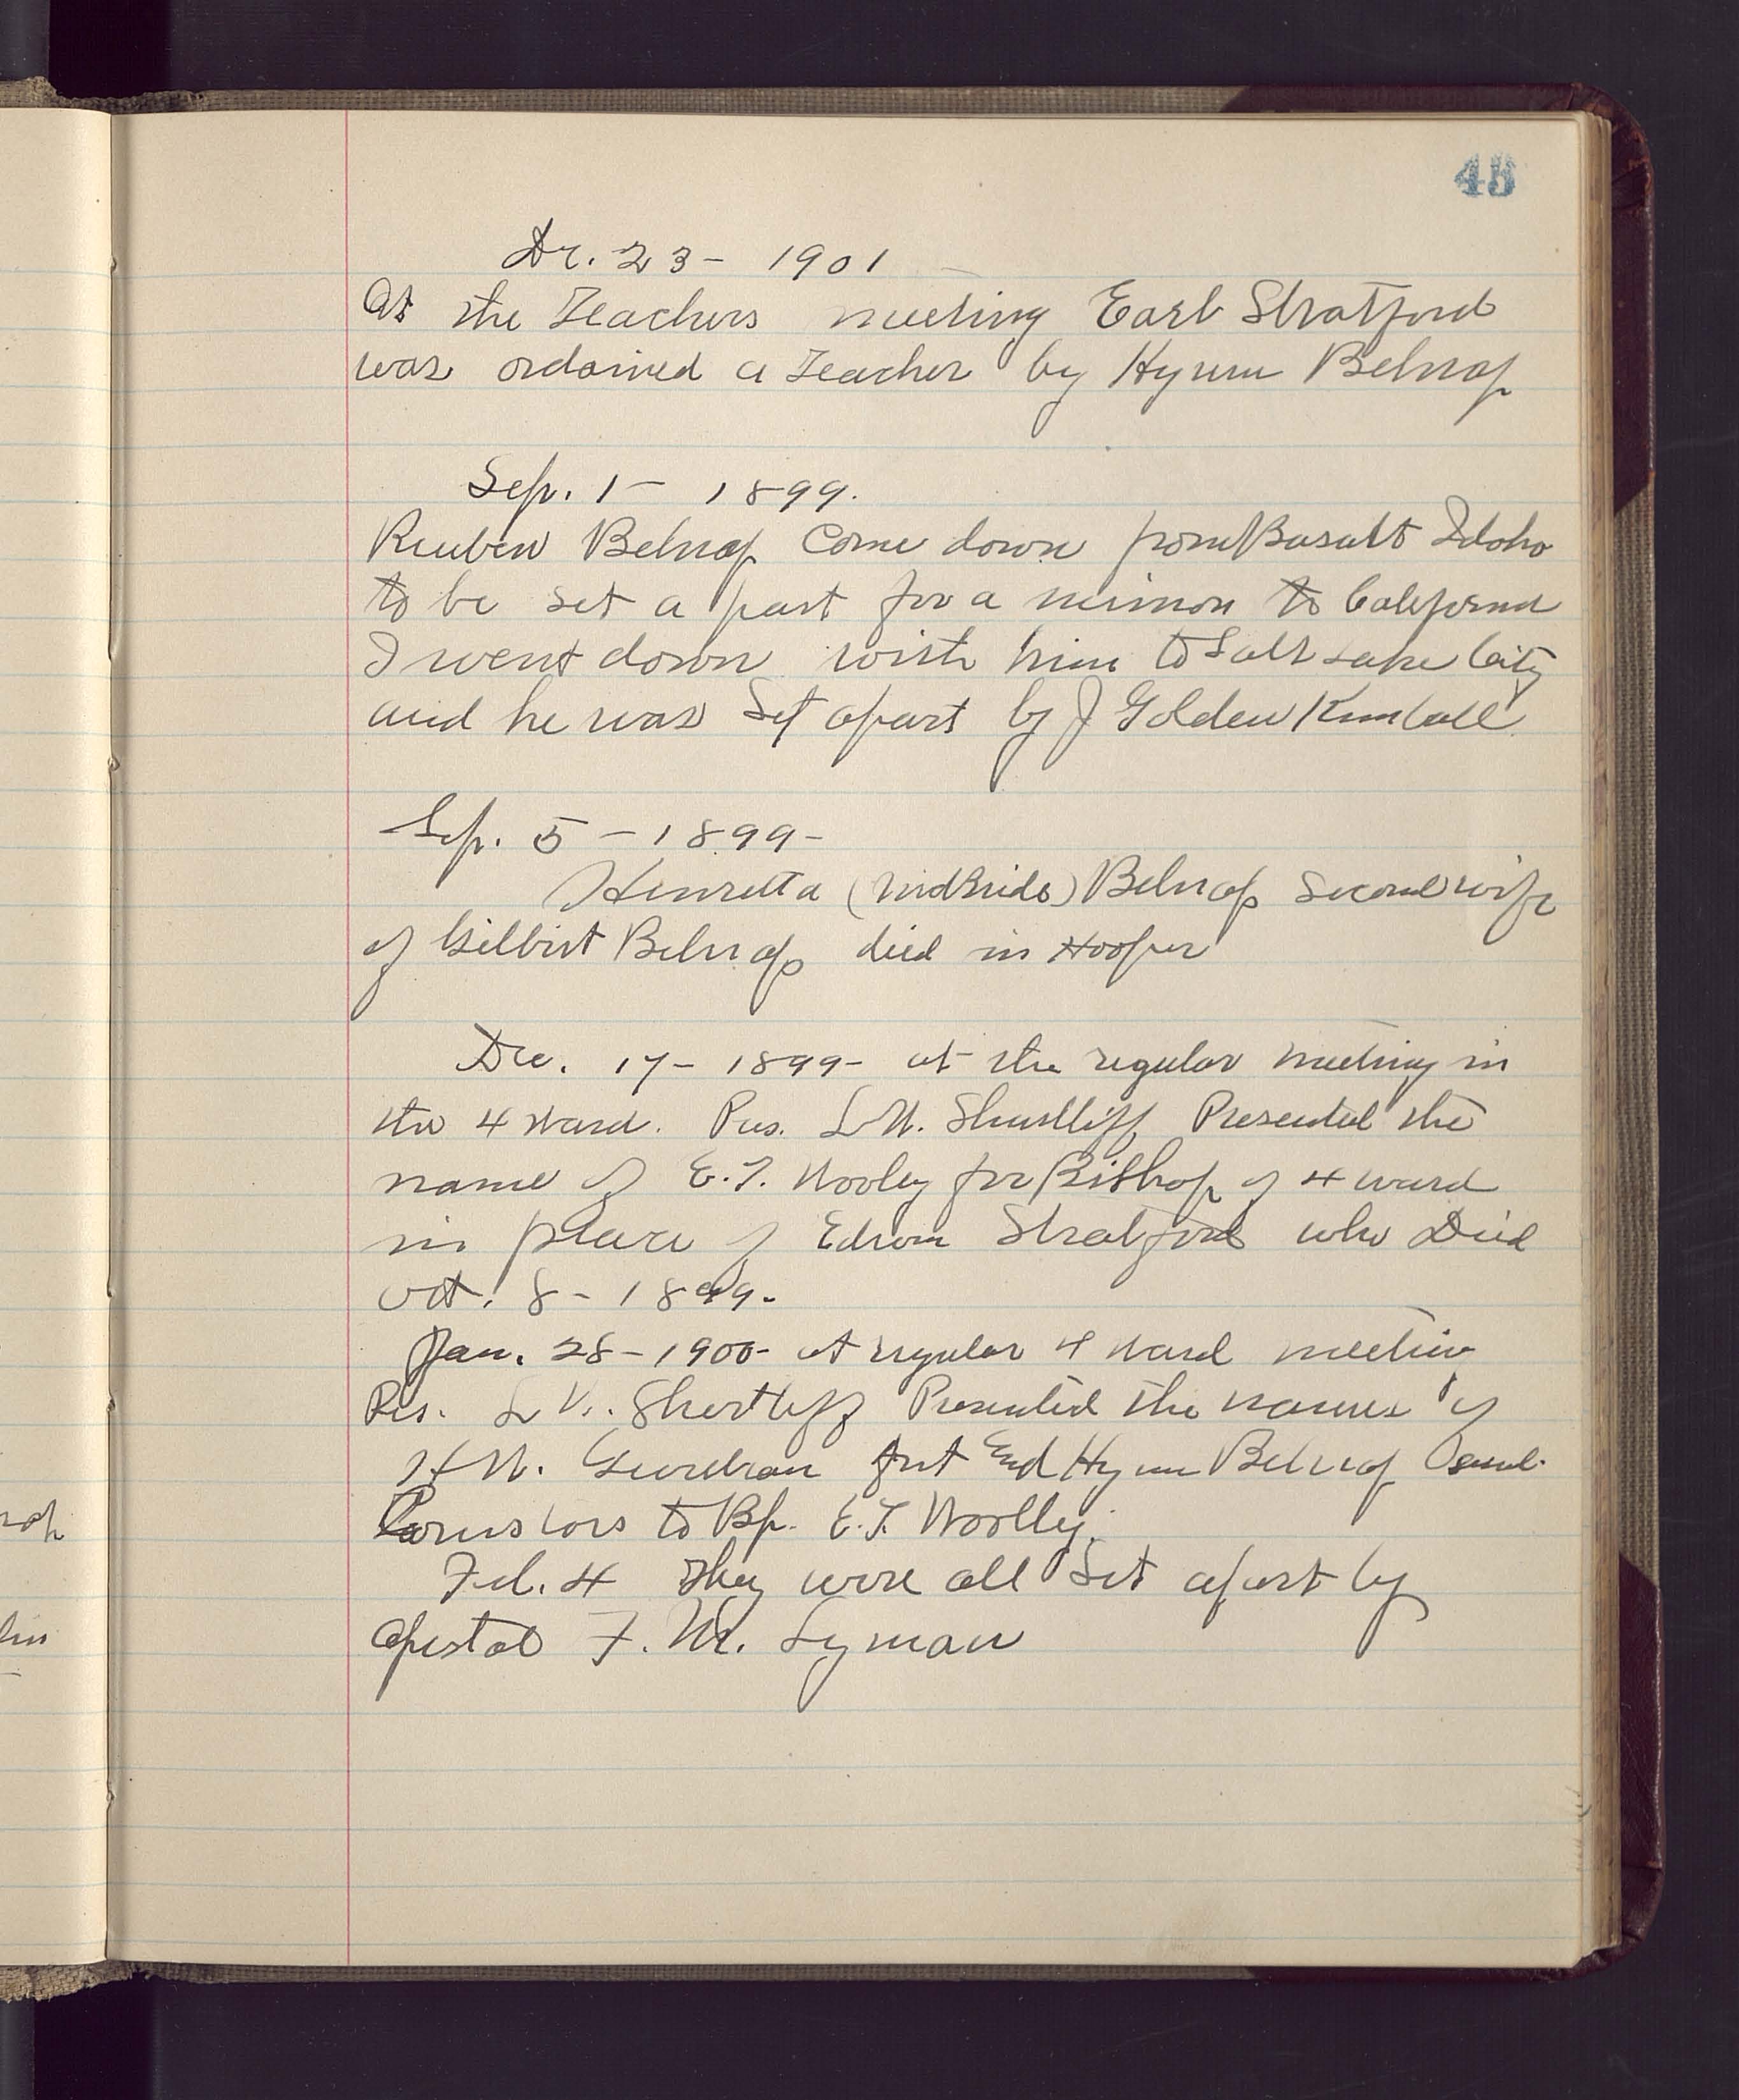 45
De. 23 - 1901
At the Teachers meeting Earl Stratford
was ordained a Teacher by Hyrum Belnap
Sep. 1 - 1899.
Reuben Belnap Come down from Basalt Idaho
to be set a part for a mission to California
I went down with him to Salt Lake City
and he was Set apart by J Golden Kimball
Sep. 5 - 1899 -
Henretta (McBride) Belnap Second wife
of Gilbert Belnap died in Hooper
Dec. 17 - 1899 - at the regular meeting in
the 4 Ward. Pres. L W. Shurtliff Presented the
name of E. T. Wooley for Bishop of 4 ward
in place of Edwin Stratford who Died
Oct. 8 - 1899.
Jan. 28 - 1900 - at regular 4 Ward meeting
Pres. L W. Shurtliff Presented the names of
H W. first and Hyrum Belnap Second
Counslors to Bp. E. T. Woolley.
Feb. 4 They were all Set apart by
Apostol F. M. Lyman